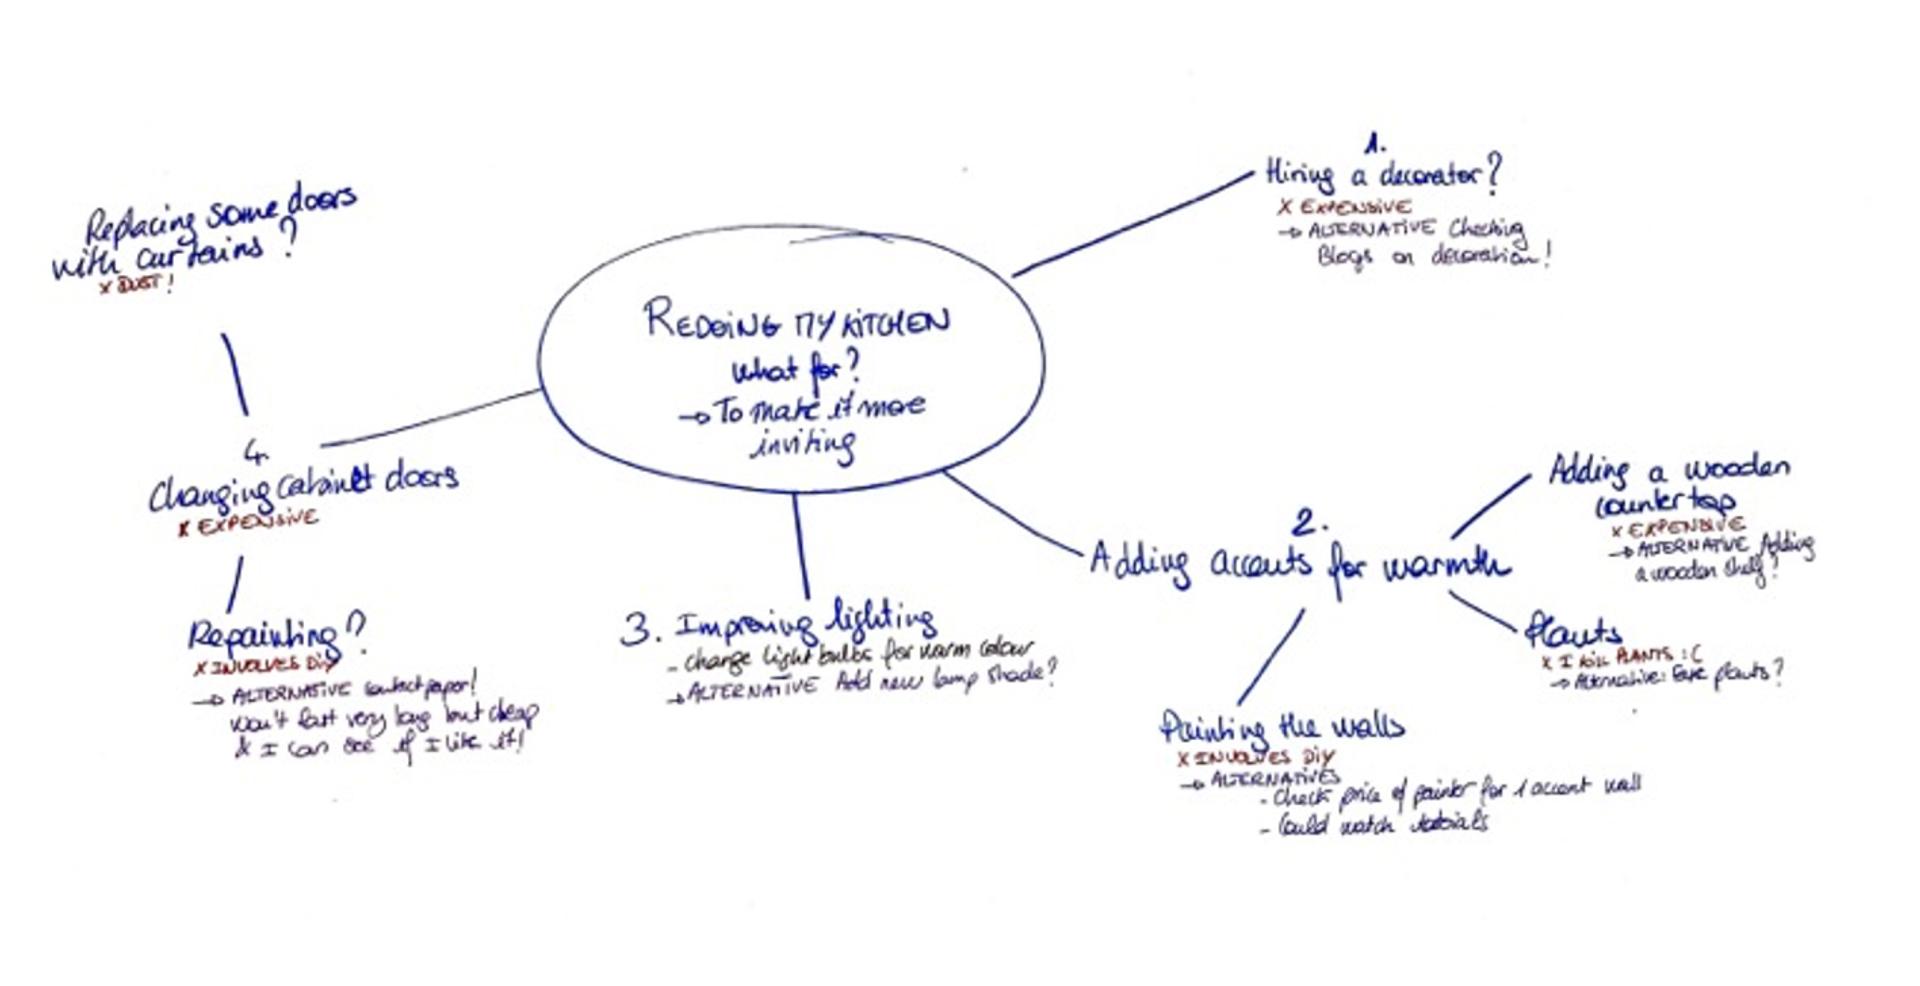 REDOING MY KITCHEN
What for?
→ To make it more
inviting
1.
Hiring a decorator?
x EXPENSIVE
→ ALTERNATIVE Checking
Blogs on decoration!
2.
Adding accents for warmth
Adding a wooden
countertop
x EXPENSIVE
→ ALTERNATIVE Adding
a wooden shelf?
Plants
x I KILL PLANTS :C
→ Alternative: Fake plants?
Painting the walls
x INVOLVES DiY
→ ALTERNATIVES
- Check price of painter for 1 accent wall
- Could watch tutorials
3. Improving lighting
- change light bulbs for warm colour
→ ALTERNATIVE Add new lamp shade?
4.
Changing cabinet doors
x EXPENSIVE
Replacing some doors
with curtains?
x DUST!
Repainting?
x INVOLVES DiY
→ ALTERNATIVE contact paper!
Won't last very long but cheap
& I can see if I like it!